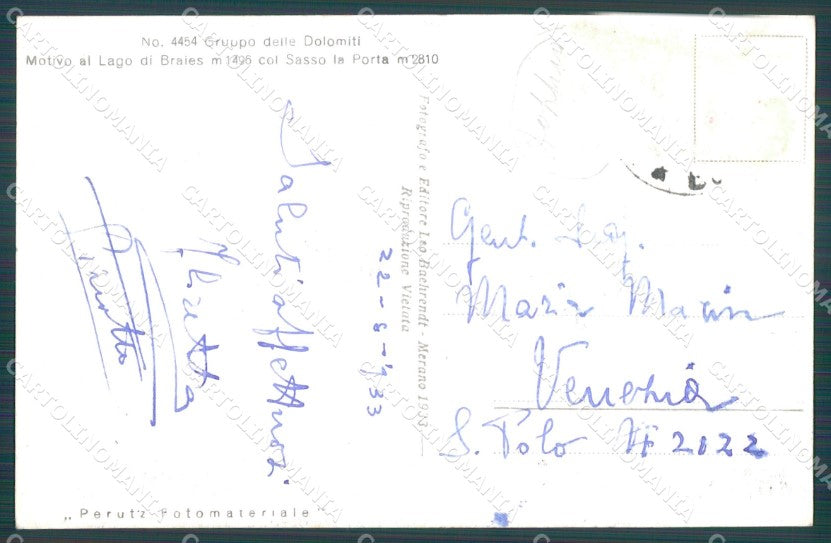 No. 4454 Gruppo delle Dolomiti
Motivo al Lago di Braies m 1495 col Sasso la Porta m 2810
Saluti affettuosi
22-8-933
Fotografo e Editore Leo Baehrendt - Merano 1933
Riproduzione Vietata
Gent. Sig.
Maria Marin
Venezia
S. Polo N 2122
„Perutz Fotomateriale"
CARTOLINOMANIA